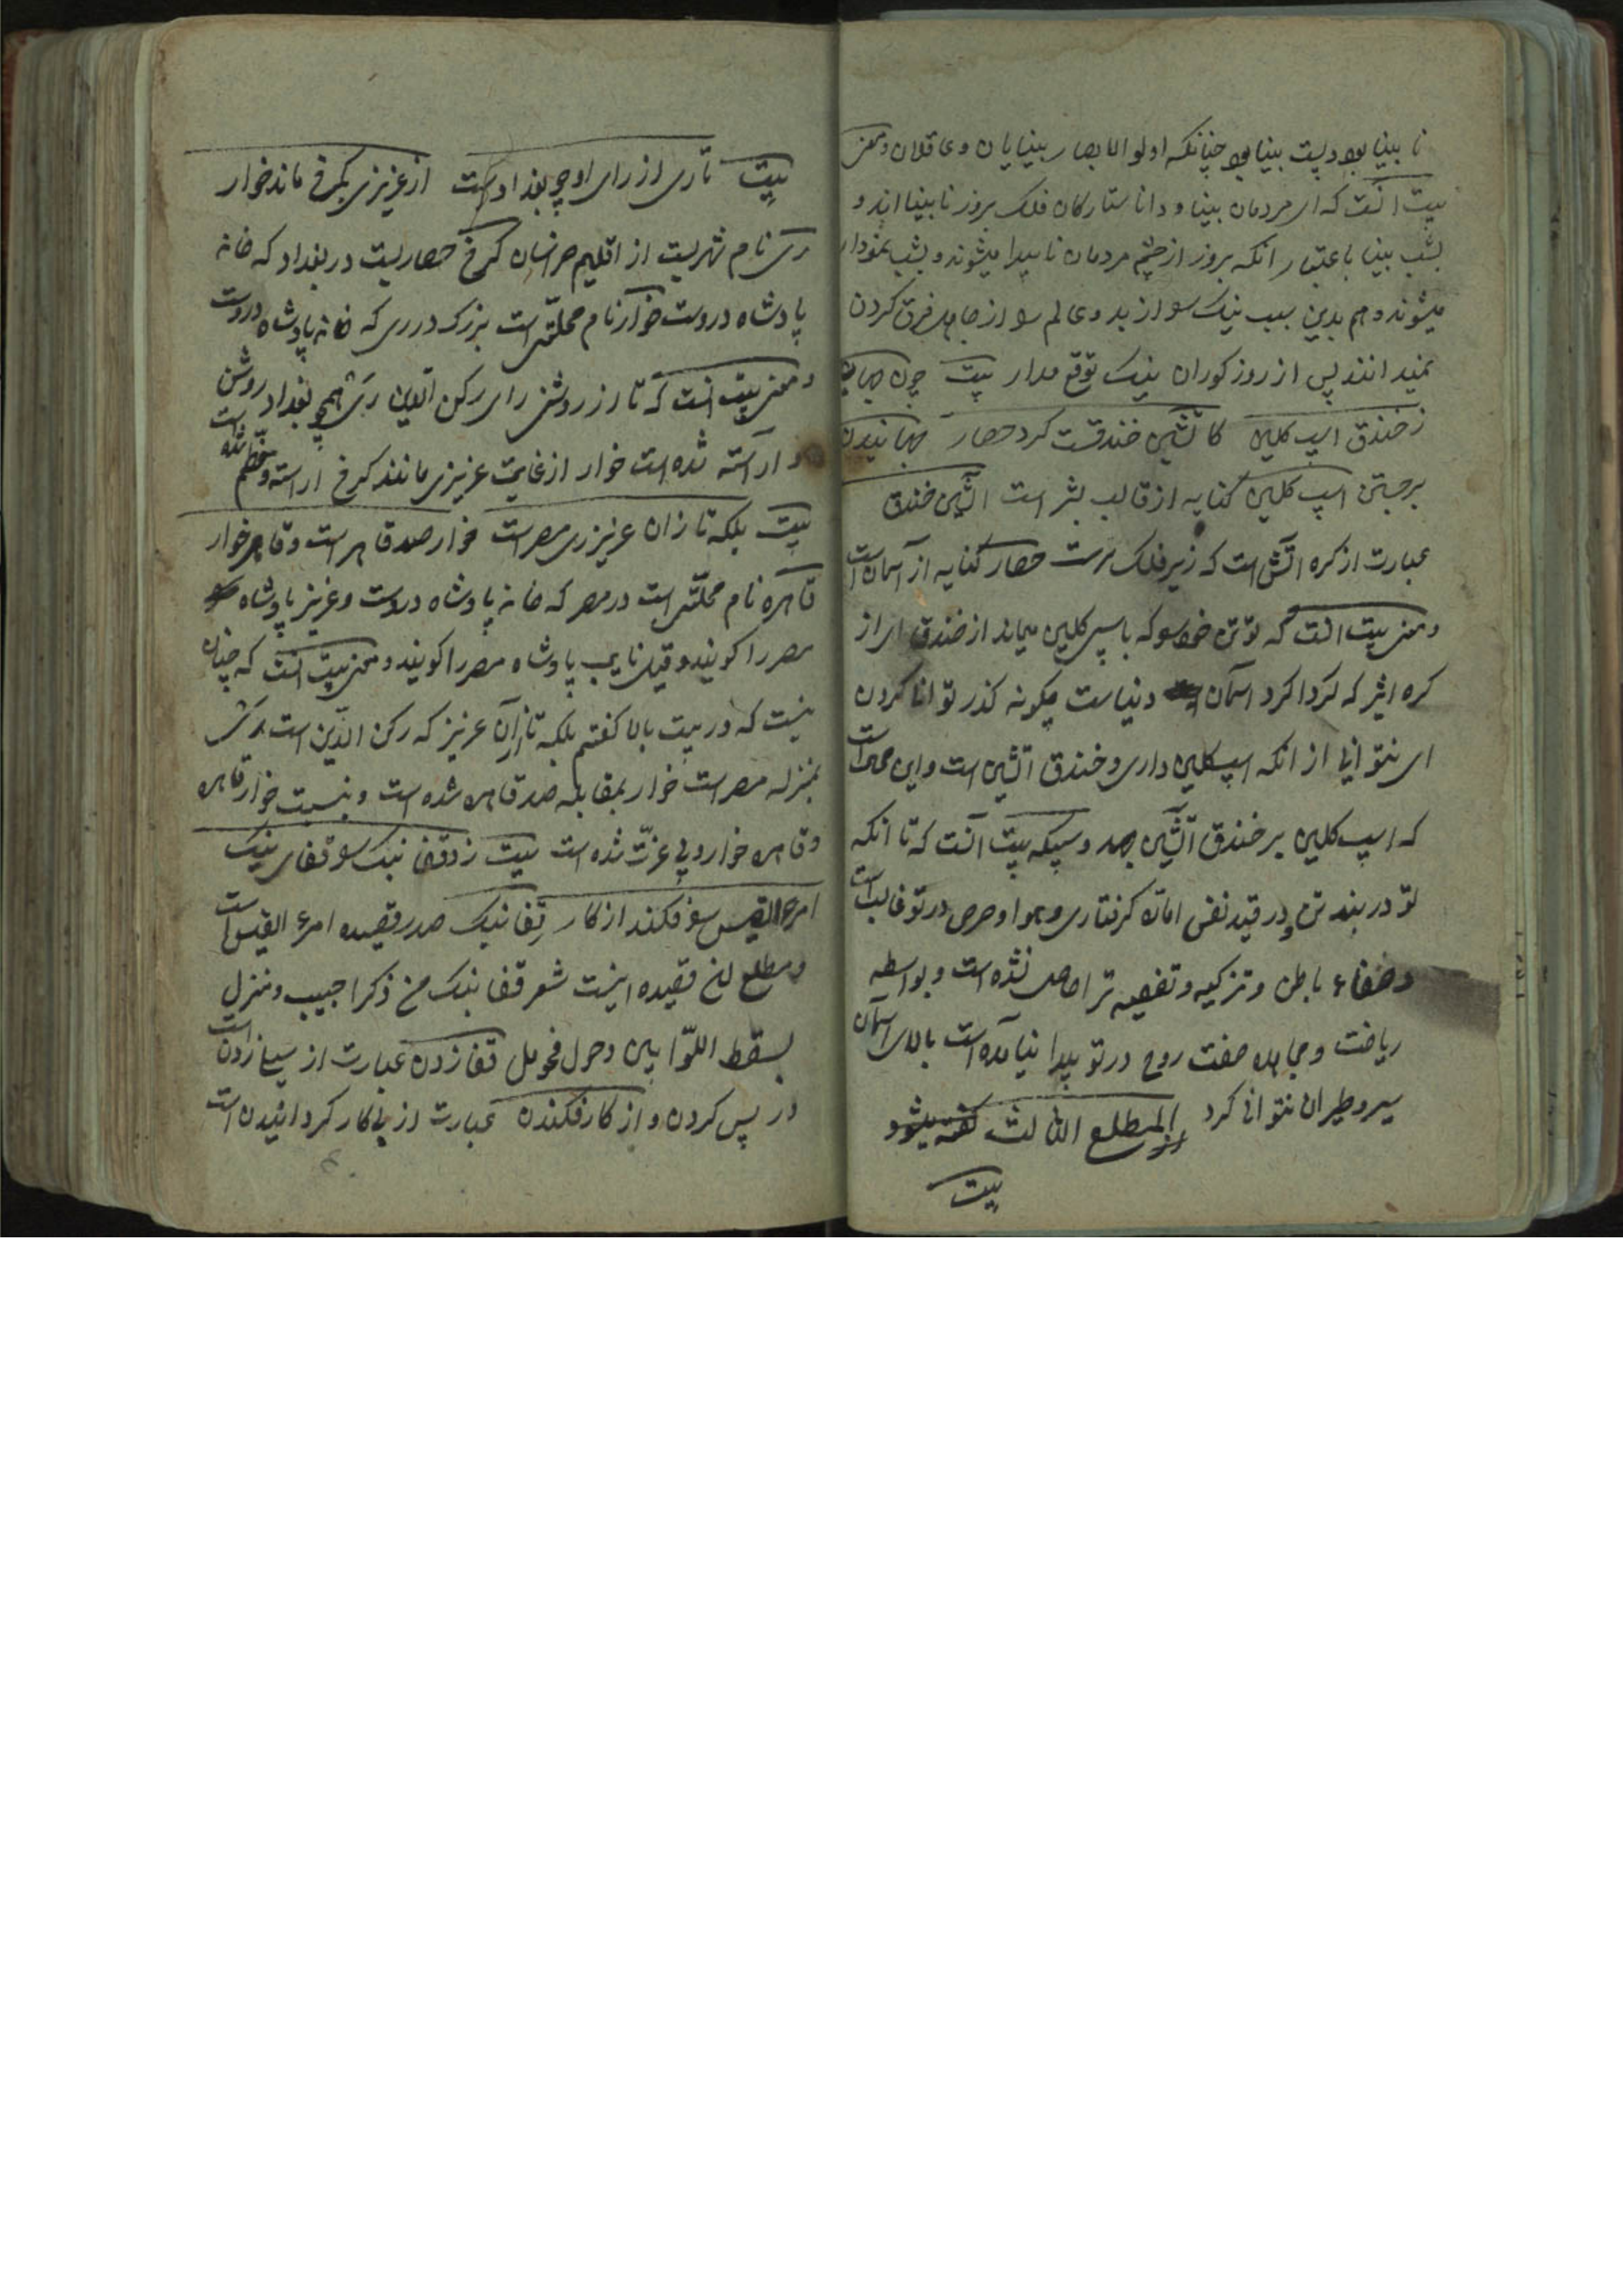 نا بینا بود و بشب بینا بود چنانکه اولو الابصار بینایان و عاقلان و معنی
بیت آنست که ای مردمان بینا و دانا ستارکان فلک بروز نابینا اند و
بشب بینا باعتبار آنکه بروز از چشم مردمان نا پیدا میشوند و بشب نمودار
میشوند و هم بدین سبب نیک را از بد و عالم را از جاهل فرق کردن
نمیدانند پس از روز کوران نیک توقع مدار بیت چون جهانی
ز خندق اسپ کلین کاتشین خندقست کرد حصار جهانیدن
برجستن اسپ کلین کنایه از قالب بشر است آتشین خندق
عبارت از کره آتش است که زیر فلک است حصار کنایه از آسمان است
و معنی بیت آنست که تو تن خود را که باسپ کلین میماند از خندق ای از
کره اثیر که کرداکرد آسمان دنیاست چکونه کذر توانا کردن
ای نتوانی از آنکه اسپ کلین داری و خندق آتشین است و این محال است
که اسپ کلین بر خندق آتشین جهد و سبکه بیت آنست که تا آنکه
تو در بند تن و در قید نفس اماره کرفتاری و هوا و حرص در تو غالب است
و صفاء باطن و تزکیه و تصفیه ترا حاصل نشده است و بواسطه
ریاضت و مجاهده صفت روح در تو پیدا نیامده است بالای آسمان
سیر و طیران نتوانی کرد المطلع الثالث کفته میشود
بیت
بیت تا ری از رای او چو بغداد است از عزیزی بکرخ ماند خوار
ری نام شهریست از اقلیم خراسان کرخ حصاریست در بغداد که خانه
پادشاه دروست خوار نام محلتی است بزرک در ری که خانه پادشاه دروست
و معنی بیت آنست که تا ری از روشنی رای رکن الدین ری همچو بغداد روشن
و آراسته شده است خوار از غایت عزیزی مانند کرخ آراسته و معظم شده است
بیت بلکه تا زان عزیز ری مصر است خوار صد قاهر است و قاهر خوار
قاهره نام محلتی است در مصر که خانه پادشاه دروست و عزیز پادشاه
مصر را کویند و قیل نایب پادشاه مصر را کویند و معنی بیت آنست که چنان
نیست که در بیت بالا کفتم بلکه تا از آن عزیز که رکن الدین است ری
بمنزله مصر است خوار بمقابله صد قاهره شده است و بنسبت خوار قاهره
و قاهره خوار و بی عزت شده است بیت زد قفا نبک را قفای نیک
امرء القیس را فکند از کار قفا نبک صدر قصیده امرء القیس است
و مطلع این قصیده اینست شعر قفا نبک من ذکرا حبیب و منزل
بسقط اللوا بین دخول فحومل قفا زدن عبارت از سیلی زدن است
در پس کردن و از کار فکندن عبارت از بی کار کردانیدن است